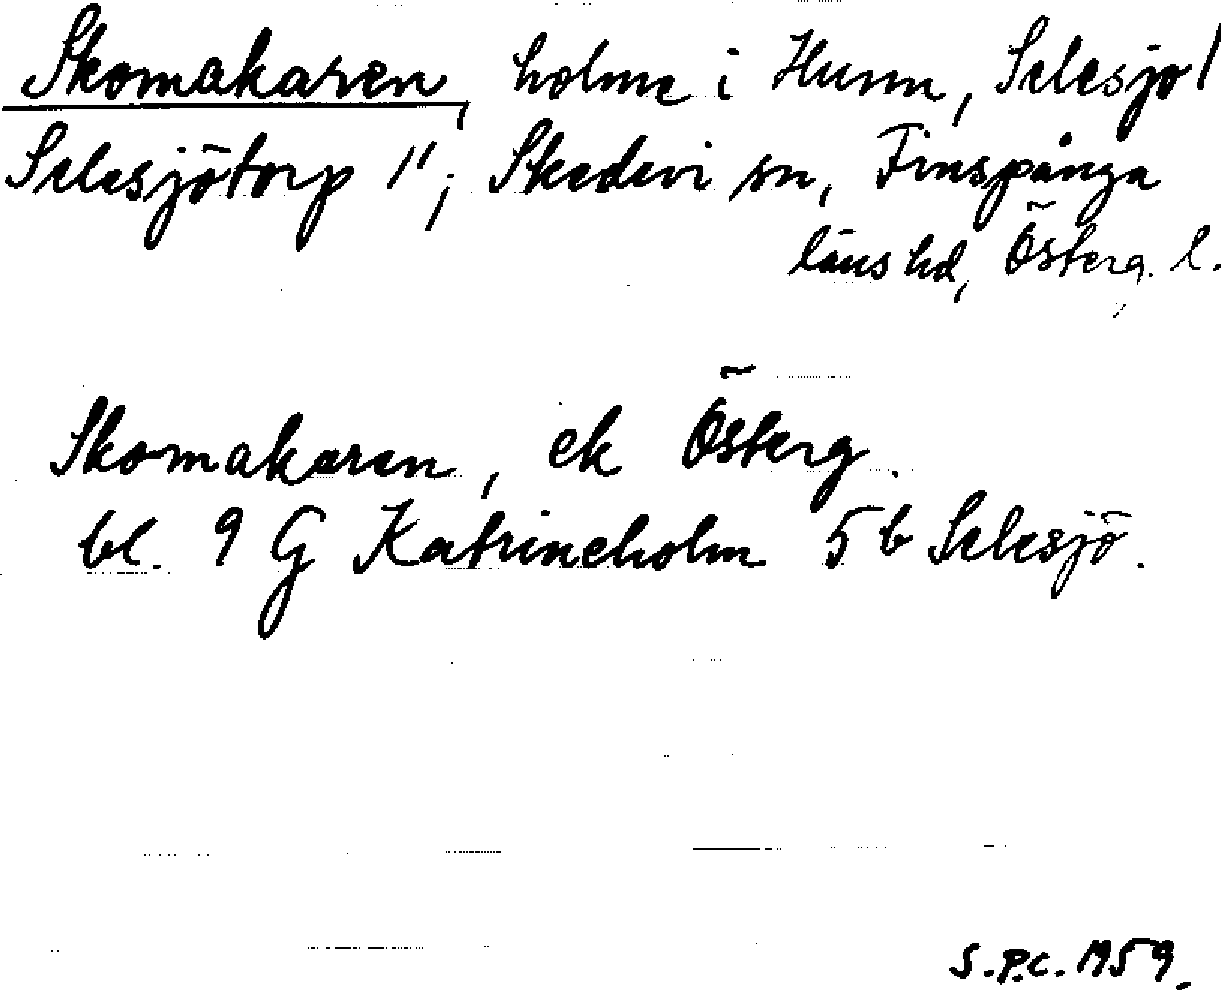 Skomakaren, holme i Hunn, Selesjö 1
Selesjötorp 1¹; Skedevi sn, Finspånga
läns hd, Österg. l.
Skomakaren, ek Österg.
bl. 9 G Katrineholm 5 b Selesjö.
S.P.C. 1959.